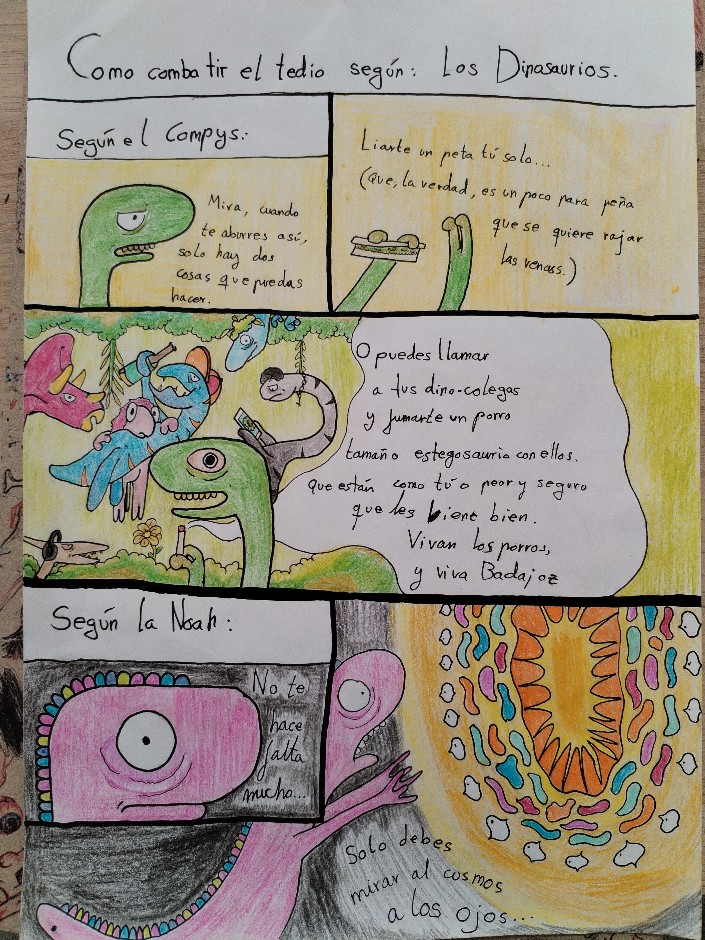 Como combatir el tedio según: Los Dinasaurios.
Según el Compys:
Mira, cuando
te aburres así,
solo hay dos
cosas que puedas
hacer.
Liarte un peta tú solo...
(que, la verdad, es un poco para peña
que se quiere rajar
las venass.)
O puedes llamar
a tus dino-colegas
y fumarte un porro
tamaño estegosaurio con ellos.
que están como tú o peor y seguro
que les viene bien.
Vivan los porros,
y viva Badajoz
Según la Noah:
No te
hace
falta
mucho...
Solo debes
mirar al cosmos
a los ojos...